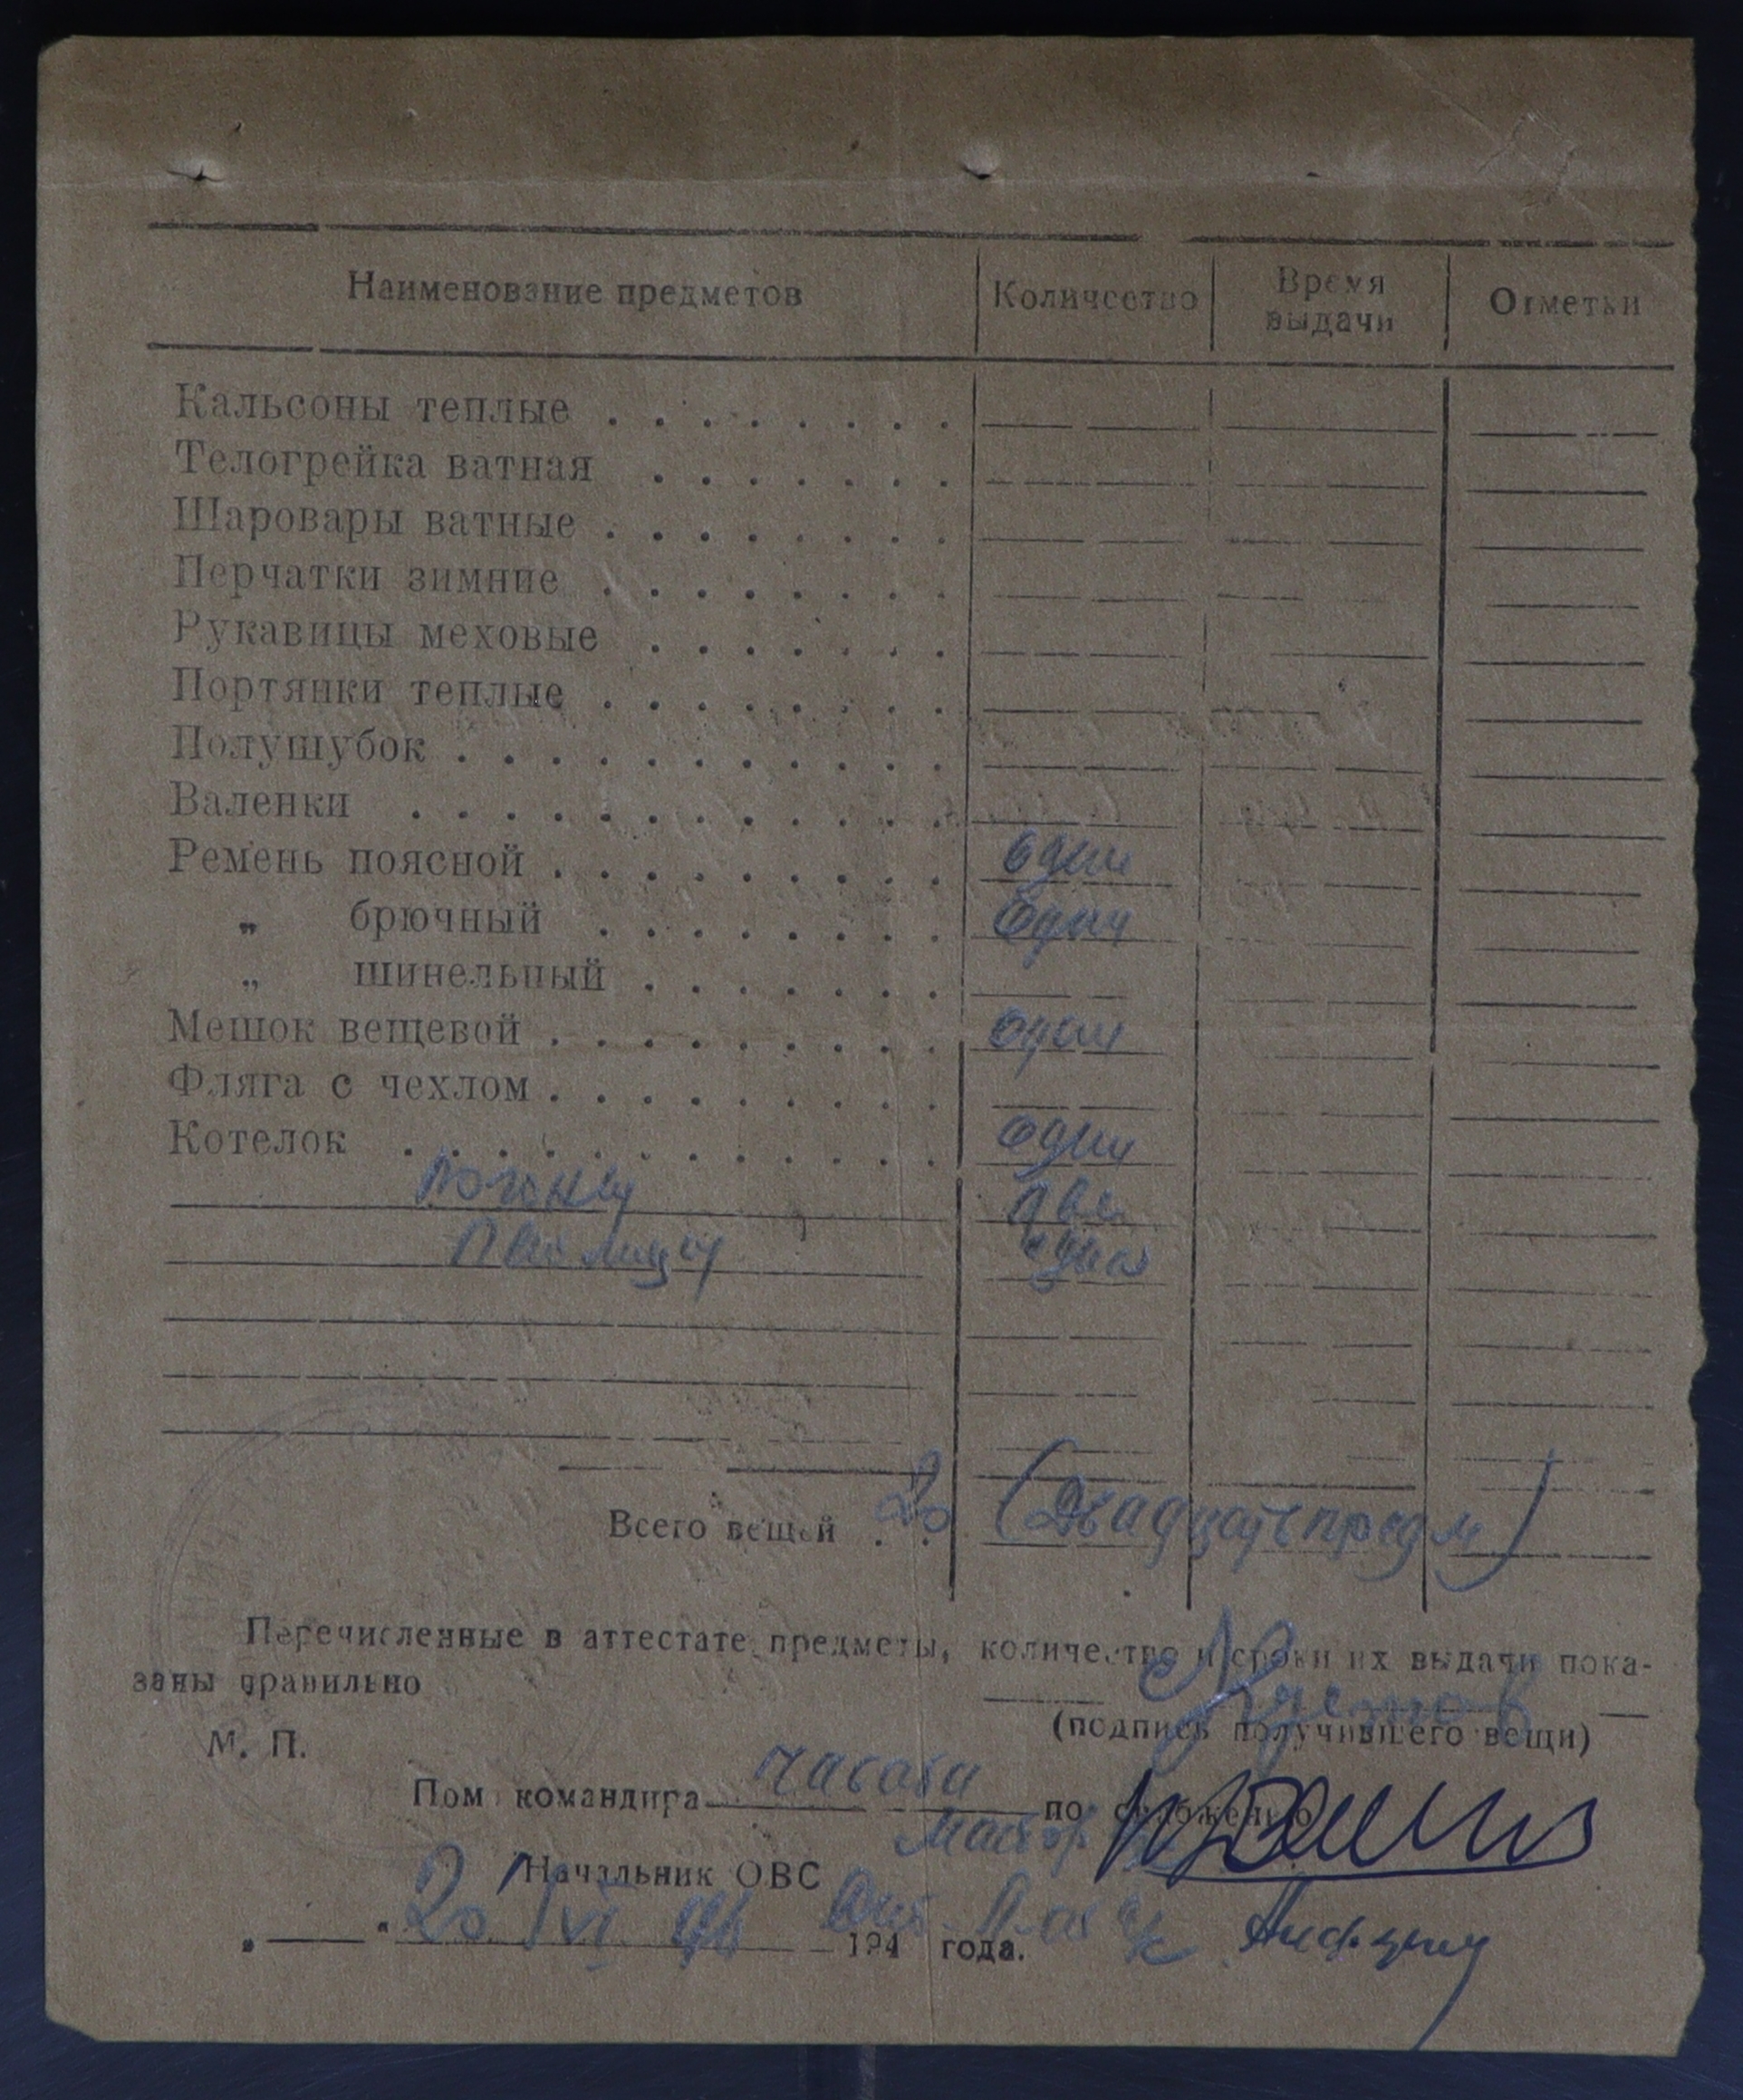 Наименование предметов Количество Время выдачи Отметки
Кальсоны теплые . . . . . . . .
Телогрейка ватная . . . . . . .
Шаровары ватные . . . . . . . .
Перчатки зимние . . . . . . . .
Рукавицы меховые . . . . . . .
Портянки теплые . . . . . . . .
Полушубок . . . . . . . . . . .
Валенки . . . . . . . . . . . .
Ремень поясной . . . . . . . . . один
„ брючный . . . . . . . . один
„ шинельный . . . . . . .
Мешок вещевой . . . . . . . . . один
Фляга с чехлом . . . . . . . . .
Котелок . . . . . . . . . . . . один
две
одна
Всего вещей . . 20 (Двадцать предм)
Перечисленные в аттестате предметы, количество и сроки их выдачи пока-
заны правильно
(подпись получившего вещи)
М. П.
Пом командира по снабжению
Майор
Начальник ОВС
„ “ 20/VI 46 194 года.